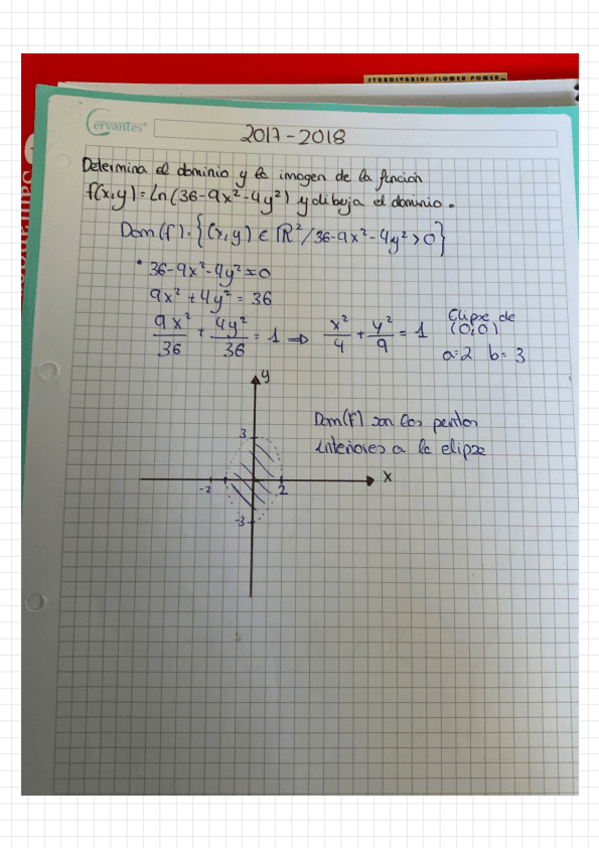 STRADIVARIUS FLOWER POWER
Cervantes
2017-2018
Determina el dominio y la imagen de la función
f(x,y)=Ln(36-9x²-4y²) y dibuja el dominio.
Dom(f)={(x,y) ∈ ℝ²/36-9x²-4y²>0}
• 36-9x²-4y²=0
9x²+4y²=36
9x²/36 + 4y²/36 = 1 ⇒ x²/4 + y²/9 = 1 Elipse de (0,0) a=2 b=3
y
Dom(f) son los puntos
interiores a la elipse
3
-2 2 x
-3